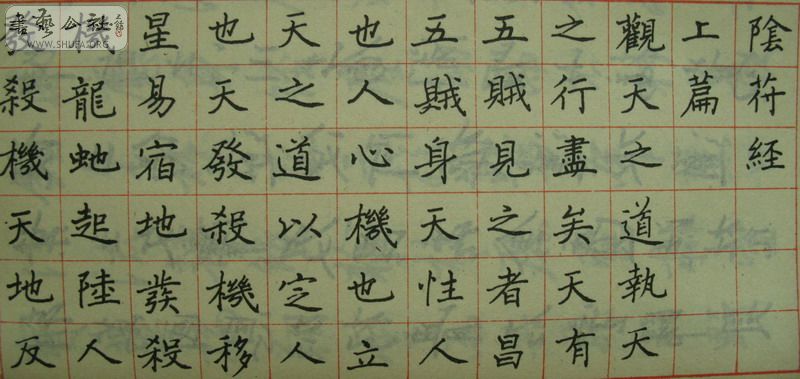 陰符經
上篇
觀天之道執天
之行盡矣天有
五賊見之者昌
五賊身天性人
也人心機也立
天之道以定人
也天發殺機移
星易宿地發殺
機龍虵起陸人
發殺機天地反
書藝公社
WWW.SHUFA.ORG